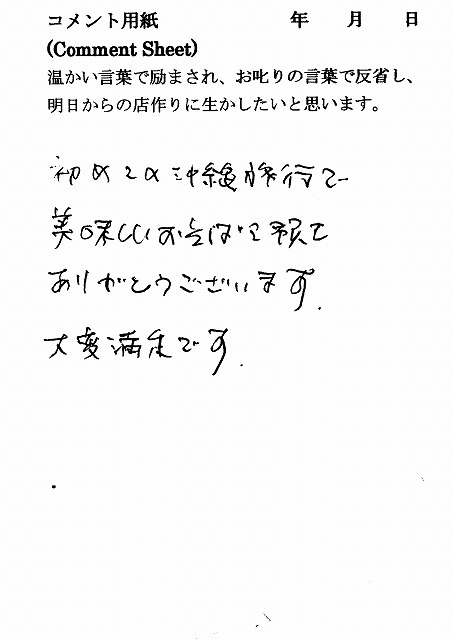 コメント用紙 年 月 日
(Comment Sheet)
温かい言葉で励まされ、お叱りの言葉で反省し、
明日からの店作りに生かしたいと思います。
初めての沖縄旅行で
美味しいお
ありがとうございます.
大変満足です.